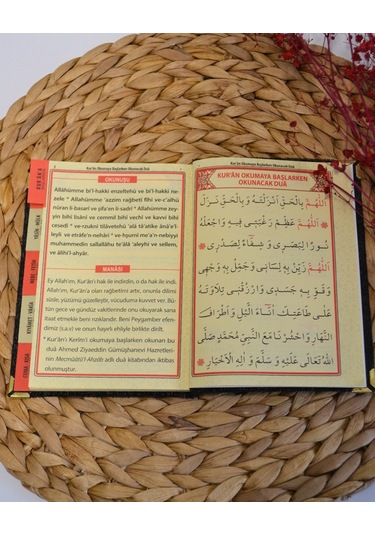 Kur'ân Okumaya Başlarken Okunacak Duâ
OKUNUŞU
Allâhümme bi'l-hakkı enzeltehû ve bi'l-hakkı ne-
zele * Allâhümme 'azzim rağbetî fîhi ve-c'alhü
nûran li-basarî ve şifa'en li-sadrî * Allâhümme zey-
yin bihî lisânî ve cemmil bihî vechî ve kavvi bihî
cesedî * ve-rzuknî tilâvetehû 'alâ tâ'atike ânâ'e-l-
leyli ve etrâfe'n-nehâri * ve-hşurnî me'a'n-nebiyyi
muhammedin sallallâhu te'âlâ 'aleyhi ve sellem,
ve âlihi'l-ahyâr.
MANÂSI
Ey Allah'ım, Kur'ân'ı hak ile indirdin, o da hak ile indi.
Allah'ım, Kur'ân'a olan rağbetimi artır, onunla dilimi
süsle, yüzümü güzelleştir, vücuduma kuvvet ver. Bü-
tün gece ve gündüz vakitlerinde onu okuyarak sana
itaat etmekle beni rızıklandır. Beni Peygamber efen-
dimiz (s.a.v) ve onun hayırlı ehliyle birlikte dirilt.
* Kur'ân-ı Kerîm'i okumaya başlarken okunan bu
duâ Ahmed Ziyaeddin Gümüşhanevi Hazretleri-
nin Mecmûatü'l-Ahzâb adlı duâ kitabından iktibas
olunmuştur.
Kur'ân Okumaya Başlarken Okunacak Duâ
KUR'ÂN OKUMAYA BAŞLARKEN
OKUNACAK DUÂ
اَللّٰهُمَّ بِالْحَقِّ اَنْزَلْتَهُ وَ بِالْحَقِّ نَزَلَ
اَللّٰهُمَّ عَظِّمْ رَغْبَتِي فِيهِ وَاجْعَلْهُ
نُورًا لِبَصَرِي وَ شِفَاءً لِصَدْرِي
اَللّٰهُمَّ زَيِّنْ بِهِ لِسَانِي وَجَمِّلْ بِهِ وَجْهِي
وَقَوِّ بِهِ جَسَدِي وَارْزُقْنِي تِلَاوَتَهُ
عَلَى طَاعَتِكَ اٰنَاءَ الَّيْلِ وَاَطْرَافَ
النَّهَارِ وَاحْشُرْنَا مَعَ النَّبِيِّ مُحَمَّدٍ صَلَّى
اللّٰهُ تَعَالَى عَلَيْهِ وَ سَلَّمَ وَ اٰلِهِ الْاَخْيَارِ